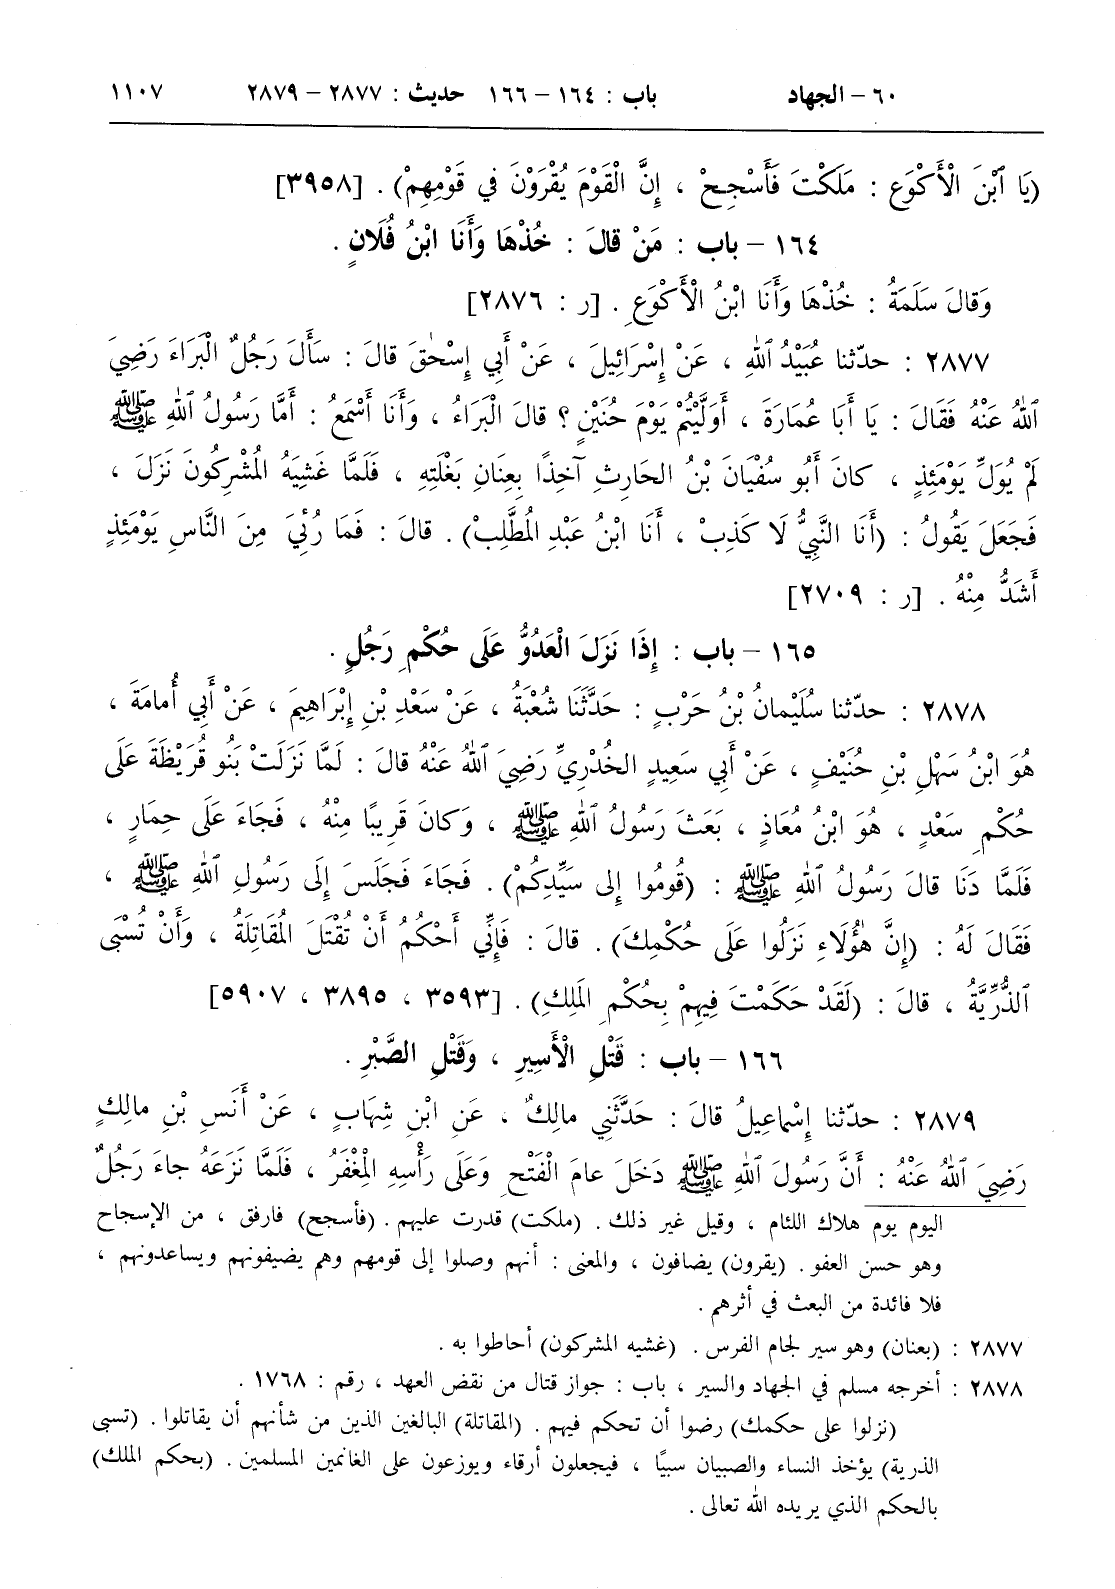 ٦٠ – الجهاد باب : ١٦٤ – ١٦٦ حديث : ٢٨٧٧ – ٢٨٧٩ ١١٠٧
(يَا ٱبْنَ الْأَكْوَعِ : مَلَكْتَ فَأَسْجِحْ ، إِنَّ الْقَوْمَ يُقْرَوْنَ في قَوْمِهِمْ) . [٣٩٥٨]
١٦٤ – باب : مَنْ قالَ : خُذْهَا وَأَنَا ابْنُ فُلَانٍ .
وَقالَ سَلَمَةُ : خُذْهَا وَأَنَا ابْنُ الْأَكْوَعِ . [ر : ٢٨٧٦]
٢٨٧٧ : حدّثنا عُبَيْدُ ٱللهِ ، عَنْ إِسْرَائِيلَ ، عَنْ أَبِي إِسْحٰقَ قالَ : سَأَلَ رَجُلٌ الْبَرَاءَ رَضِيَ
ٱللهُ عَنْهُ فَقَالَ : يَا أَبَا عُمَارَةَ ، أَوَلَّيْتُمْ يَوْمَ حُنَيْنٍ ؟ قالَ الْبَرَاءُ ، وَأَنَا أَسْمَعُ : أَمَّا رَسُولُ ٱللهِ ﷺ
لَمْ يُوَلِّ يَوْمَئِذٍ ، كانَ أَبُو سُفْيَانَ بْنُ الحَارِثِ آخِذًا بِعِنَانِ بَغْلَتِهِ ، فَلَمَّا غَشِيَهُ الْمُشْرِكُونَ نَزَلَ ،
فَجَعَلَ يَقُولُ : (أَنَا النَّبِيُّ لَا كَذِبْ ، أَنَا ابْنُ عَبْدِ الْمُطَّلِبْ) . قالَ : فَمَا رُئِيَ مِنَ النَّاسِ يَوْمَئِذٍ
أَشَدُّ مِنْهُ . [ر : ٢٧٠٩]
١٦٥ – باب : إِذَا نَزَلَ الْعَدُوُّ عَلَى حُكْمِ رَجُلٍ .
٢٨٧٨ : حدّثنا سُلَيْمانُ بْنُ حَرْبٍ : حَدَّثَنَا شُعْبَةُ ، عَنْ سَعْدِ بْنِ إِبْرَاهِيمَ ، عَنْ أَبِي أُمامَةَ ،
هُوَ ابْنُ سَهْلِ بْنِ حُنَيْفٍ ، عَنْ أَبِي سَعِيدٍ الخُدْرِيِّ رَضِيَ ٱللهُ عَنْهُ قالَ : لَمَّا نَزَلَتْ بَنُو قُرَيْظَةَ عَلَى
حُكْمِ سَعْدٍ ، هُوَ ابْنُ مُعَاذٍ ، بَعَثَ رَسُولُ ٱللهِ ﷺ ، وَكانَ قَرِيبًا مِنْهُ ، فَجَاءَ عَلَى حِمَارٍ ،
فَلَمَّا دَنَا قالَ رَسُولُ ٱللهِ ﷺ : (قُومُوا إِلى سَيِّدِكُمْ) . فَجَاءَ فَجَلَسَ إِلَى رَسُولِ ٱللهِ ﷺ ،
فَقَالَ لَهُ : (إِنَّ هٰؤُلَاءِ نَزَلُوا عَلَى حُكْمِكَ) . قالَ : فَإِنِّي أَحْكُمُ أَنْ تُقْتَلَ الْمُقَاتِلَةُ ، وَأَنْ تُسْبَى
ٱلذُّرِّيَّةُ ، قالَ : (لَقَدْ حَكَمْتَ فِيهِمْ بِحُكْمِ الْمَلِكِ) . [٣٥٩٣ ، ٣٨٩٥ ، ٥٩٠٧]
١٦٦ – باب : قَتْلِ الْأَسِيرِ ، وَقَتْلِ الصَّبْرِ .
٢٨٧٩ : حدّثنا إِسْماعِيلُ قالَ : حَدَّثَنِي مالِكٌ ، عَنِ ابْنِ شِهَابٍ ، عَنْ أَنَسِ بْنِ مالِكٍ
رَضِيَ ٱللهُ عَنْهُ : أَنَّ رَسُولَ ٱللهِ ﷺ دَخَلَ عامَ الْفَتْحِ وَعَلَى رَأْسِهِ الْمِغْفَرُ ، فَلَمَّا نَزَعَهُ جاءَ رَجُلٌ
اليوم يوم هلاك اللئام ، وقيل غير ذلك . (ملكت) قدرت عليهم . (فأسجح) فارفق ، من الإسجاح
وهو حسن العفو . (يقرون) يضافون ، والمعنى : أنهم وصلوا إلى قومهم وهم يضيفونهم ويساعدونهم ،
فلا فائدة من البعث في أثرهم .
٢٨٧٧ : (بعنان) وهو سير لجام الفرس . (غشيه المشركون) أحاطوا به .
٢٨٧٨ : أخرجه مسلم في الجهاد والسير ، باب : جواز قتال من نقض العهد ، رقم : ١٧٦٨ .
(نزلوا على حكمك) رضوا أن تحكم فيهم . (المقاتلة) البالغين الذين من شأنهم أن يقاتلوا . (تسبى
الذرية) يؤخذ النساء والصبيان سبيًا ، فيجعلون أرقاء ويوزعون على الغانمين المسلمين . (بحكم الملك)
بالحكم الذي يريده الله تعالى .